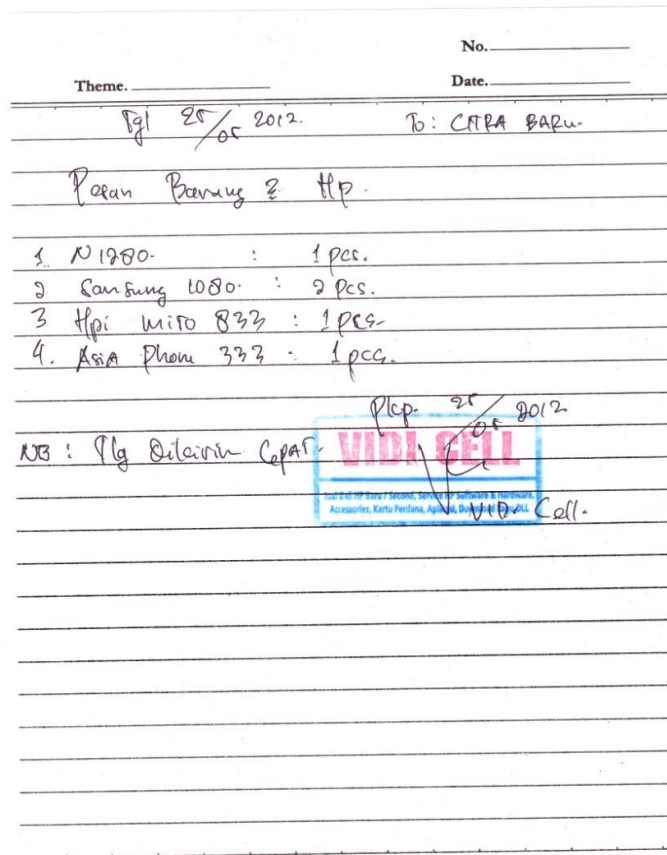 No.
Theme. Date.
Tgl 25/05 2012. To: CITRA BARU.
Pesan Barang2 Hp.
1. N 1280. : 1 pcs.
2 Samsung 1080. : 2 pcs.
3 Hp: mito 833 : 1 pcs.
4. Asia Phone 333 : 1 pcs.
Plcp. 25/05 2012
NB : Tlg Dikirim CepAT.
VIDI CELL
Jual Beli HP Baru / Second, Service HP Software & Hardware,
Accessories, Kartu Perdana, Aplikasi, Download Lagu DLL
VIDI Cell.